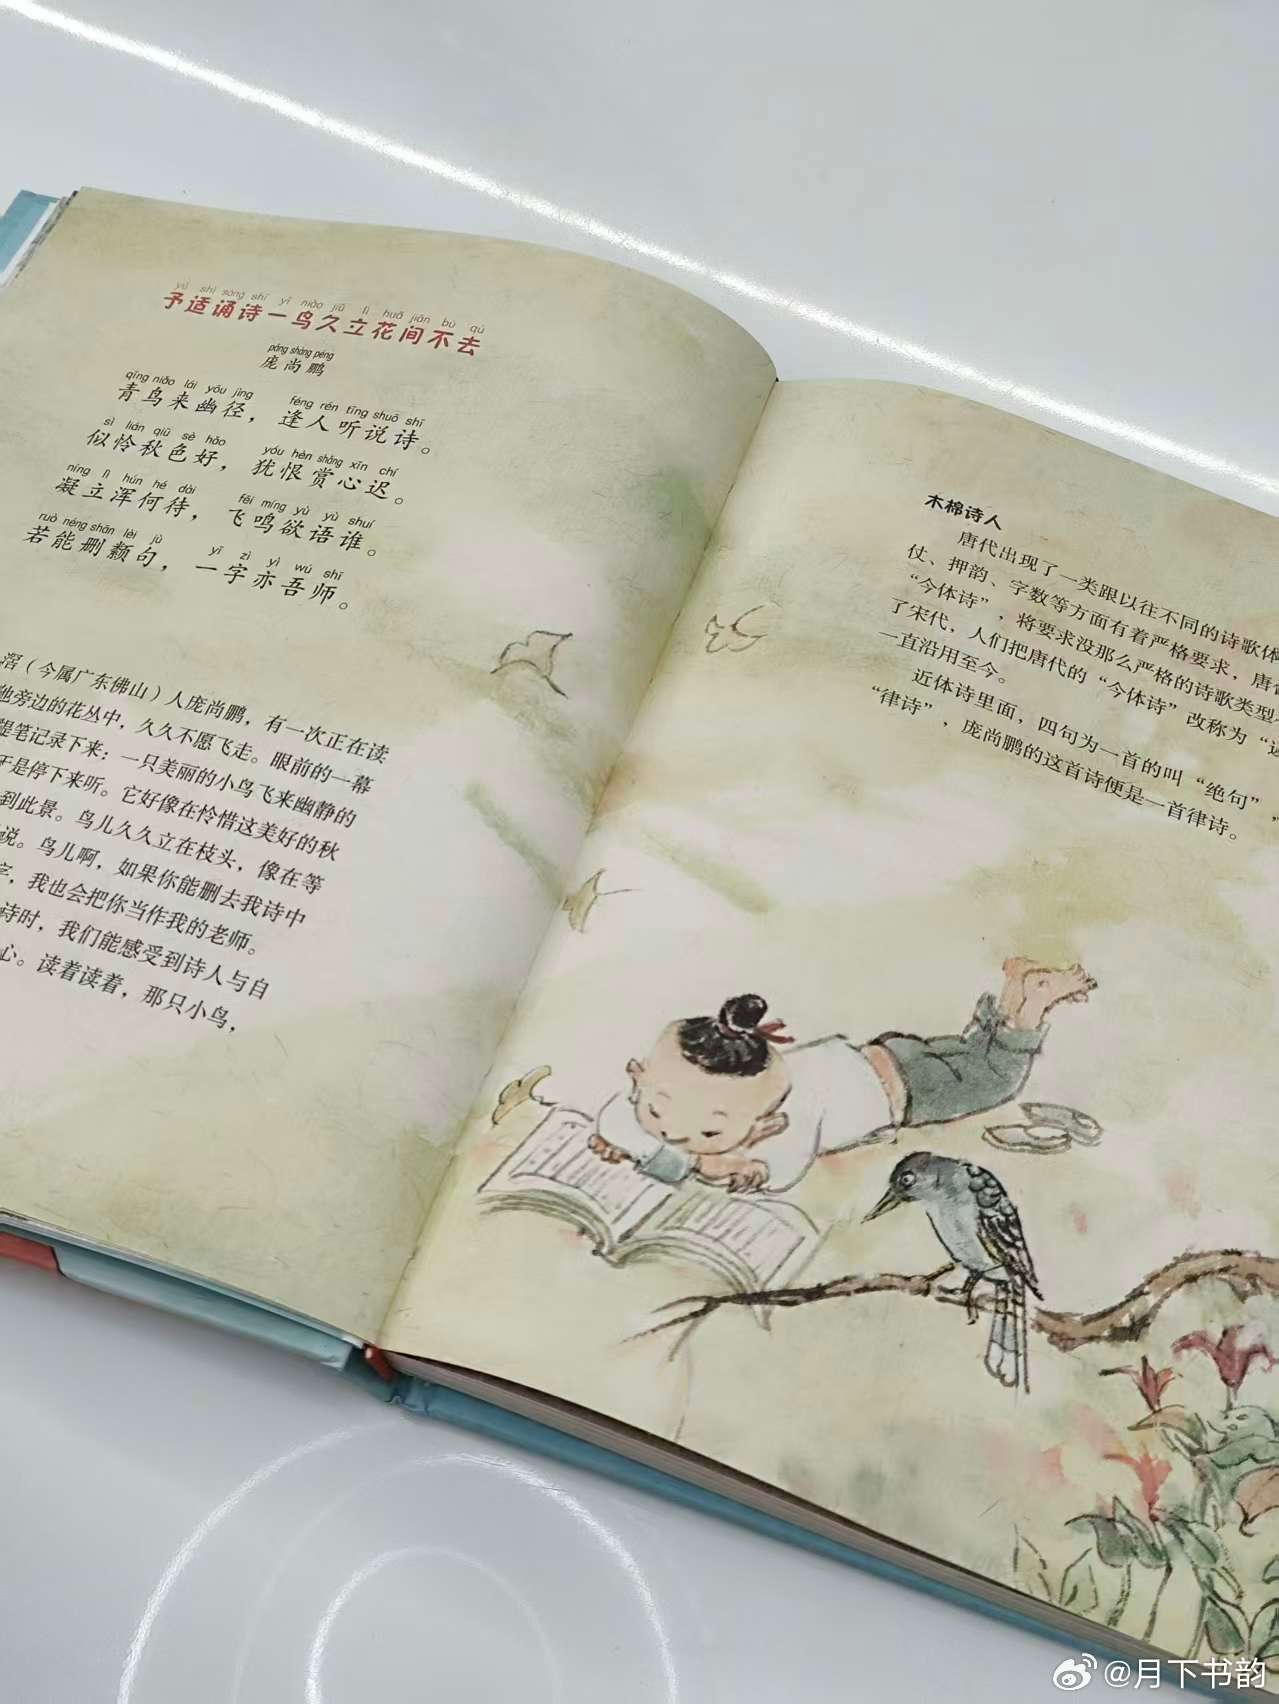 yú shì sòng shī yī niǎo jiǔ lì huā jiān bù qù
予适诵诗一鸟久立花间不去
páng shàng péng
庞尚鹏
qīng niǎo lái yōu jìng féng rén tīng shuō shī
青鸟来幽径，逢人听说诗。
sì lián qiū sè hǎo yóu hèn shǎng xīn chí
似怜秋色好，犹恨赏心迟。
níng lì hún hé dài fēi míng yù yǔ shuí
凝立浑何待，飞鸣欲语谁。
ruò néng shān lèi jù yī zì yì wú shī
若能删颣句，一字亦吾师。
滘（今属广东佛山）人庞尚鹏，有一次正在读
他旁边的花丛中，久久不愿飞走。眼前的一幕
提笔记录下来：一只美丽的小鸟飞来幽静的
于是停下来听。它好像在怜惜这美好的秋
到此景。鸟儿久久立在枝头，像在等
说。鸟儿啊，如果你能删去我诗中
字，我也会把你当作我的老师。
诗时，我们能感受到诗人与自
心。读着读着，那只小鸟，
木棉诗人
唐代出现了一类跟以往不同的诗歌体
仗、押韵、字数等方面有着严格要求，唐
“今体诗”，将要求没那么严格的诗歌类型
了宋代，人们把唐代的“今体诗”改称为“近
一直沿用至今。
近体诗里面，四句为一首的叫“绝句”，
“律诗”，庞尚鹏的这首诗便是一首律诗。
@月下书韵